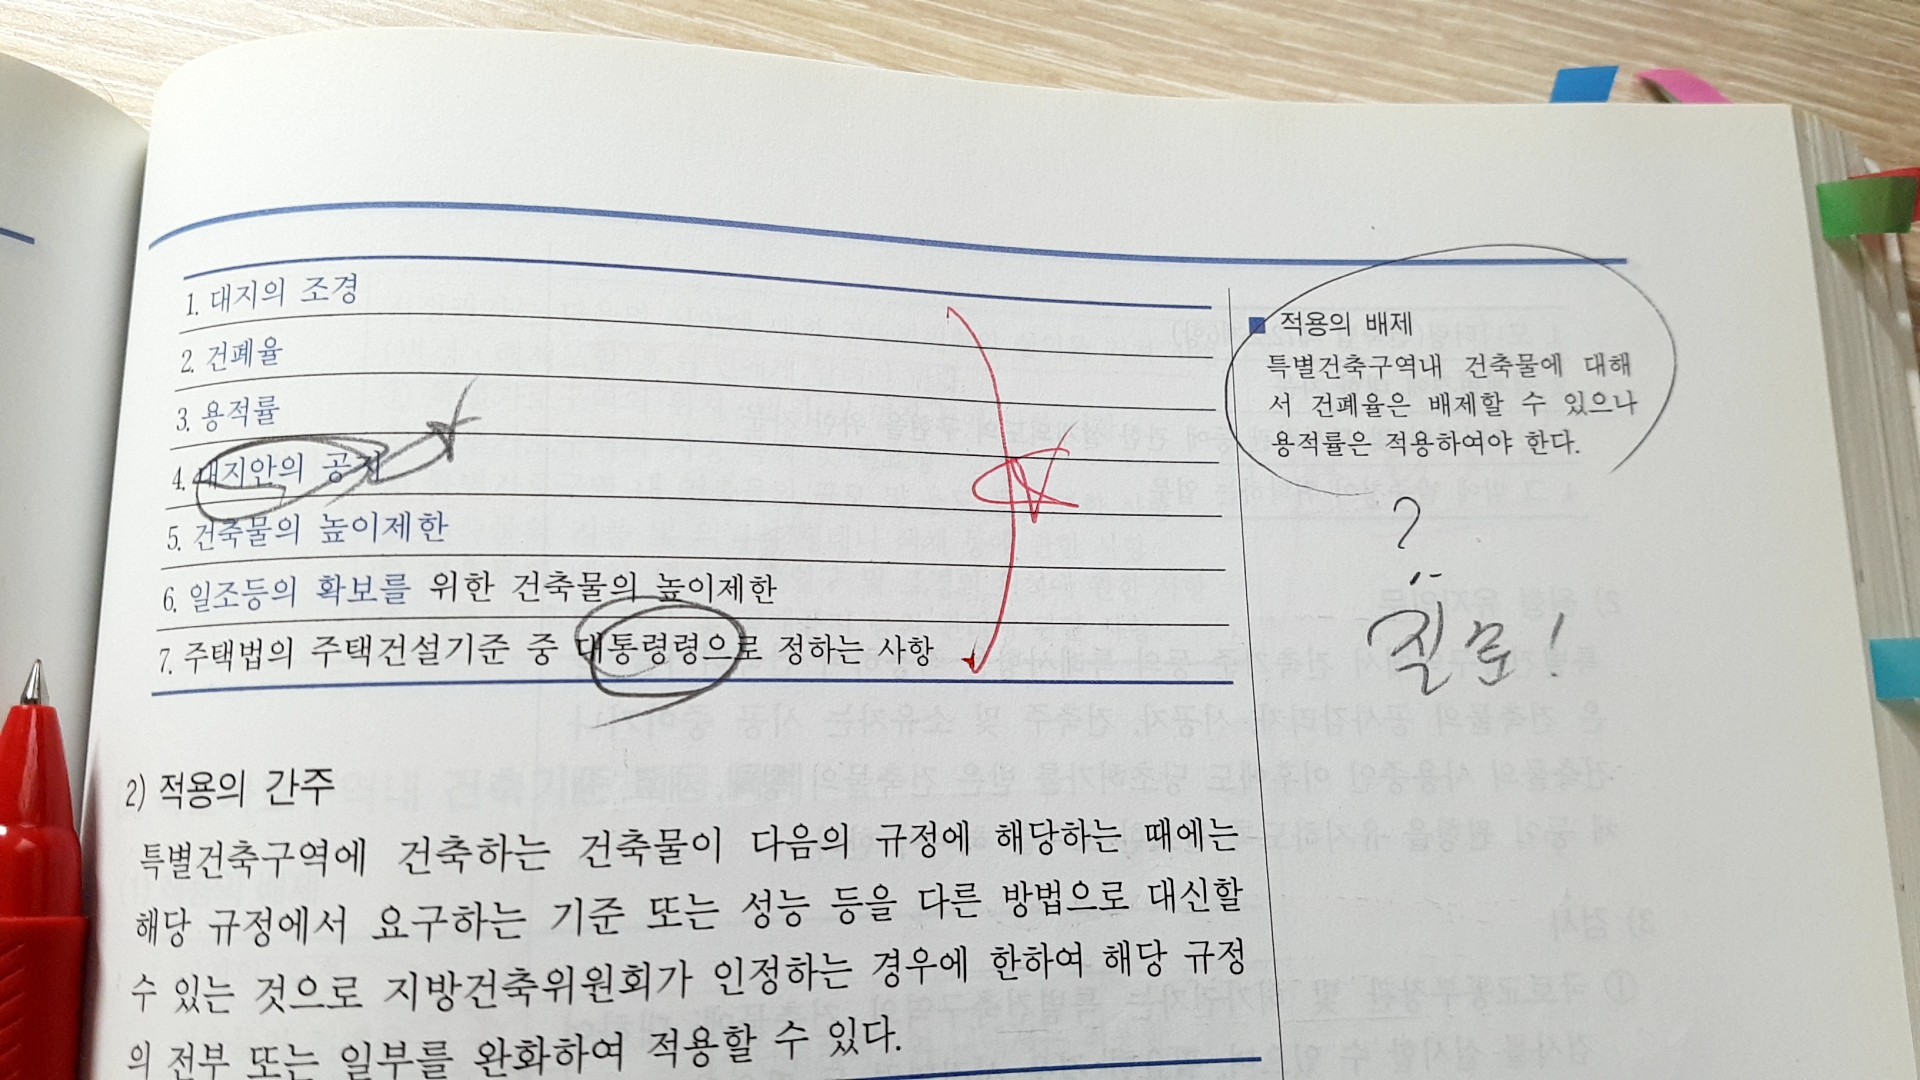 1. 대지의 조경
2. 건폐율
3. 용적률
4. 대지안의 공지
5. 건축물의 높이제한
6. 일조등의 확보를 위한 건축물의 높이제한
7. 주택법의 주택건설기준 중 대통령령으로 정하는 사항
■ 적용의 배제
특별건축구역내 건축물에 대해
서 건폐율은 배제할 수 있으나
용적률은 적용하여야 한다.
?
질문!
2) 적용의 간주
특별건축구역에 건축하는 건축물이 다음의 규정에 해당하는 때에는
해당 규정에서 요구하는 기준 또는 성능 등을 다른 방법으로 대신할
수 있는 것으로 지방건축위원회가 인정하는 경우에 한하여 해당 규정
의 전부 또는 일부를 완화하여 적용할 수 있다.